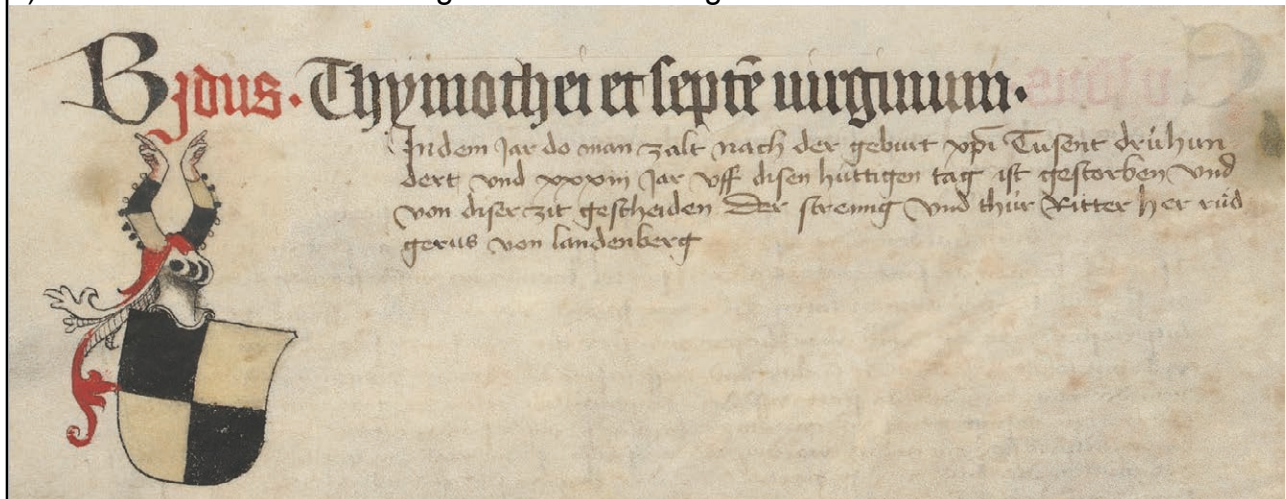 B jdus · Thymothei et septē uirginum ·
In dem Jar do man zalt nach der geburt xpi Tusent drühun
dert vnd xxxiij Jar vff disen hüttigen tag ist gestorben vnd
von diser zit gescheiden Der streinng vnd thür Ritter her rüd
gerus von landenberg